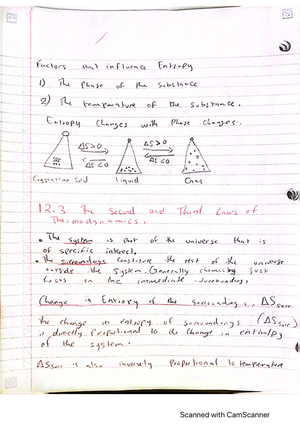 Factors that influence Entropy
1) The Phase of the substance
2) The temperature of the substance.
Entropy Changes with Phase Changes.
ΔS>0 ΔS>0
ΔS<0 ΔS<0
Crystalline Solid Liquid Gas
12.3 The Second and Third Laws of
Thermodynamics.
• The system is part of the universe that is
of specific interest.
• The surroundings constitute the rest of the universe
outside the system. Generally chemistry just
focus on the immediate surroundings
Change in Entropy of the surroundings, ΔSsurr
the change in entropy of surroundings (ΔSsurr)
is directly Proportional to the change in enthalpy
of the system.
ΔSsurr is also inversely Proportional to temperature
Scanned with CamScanner